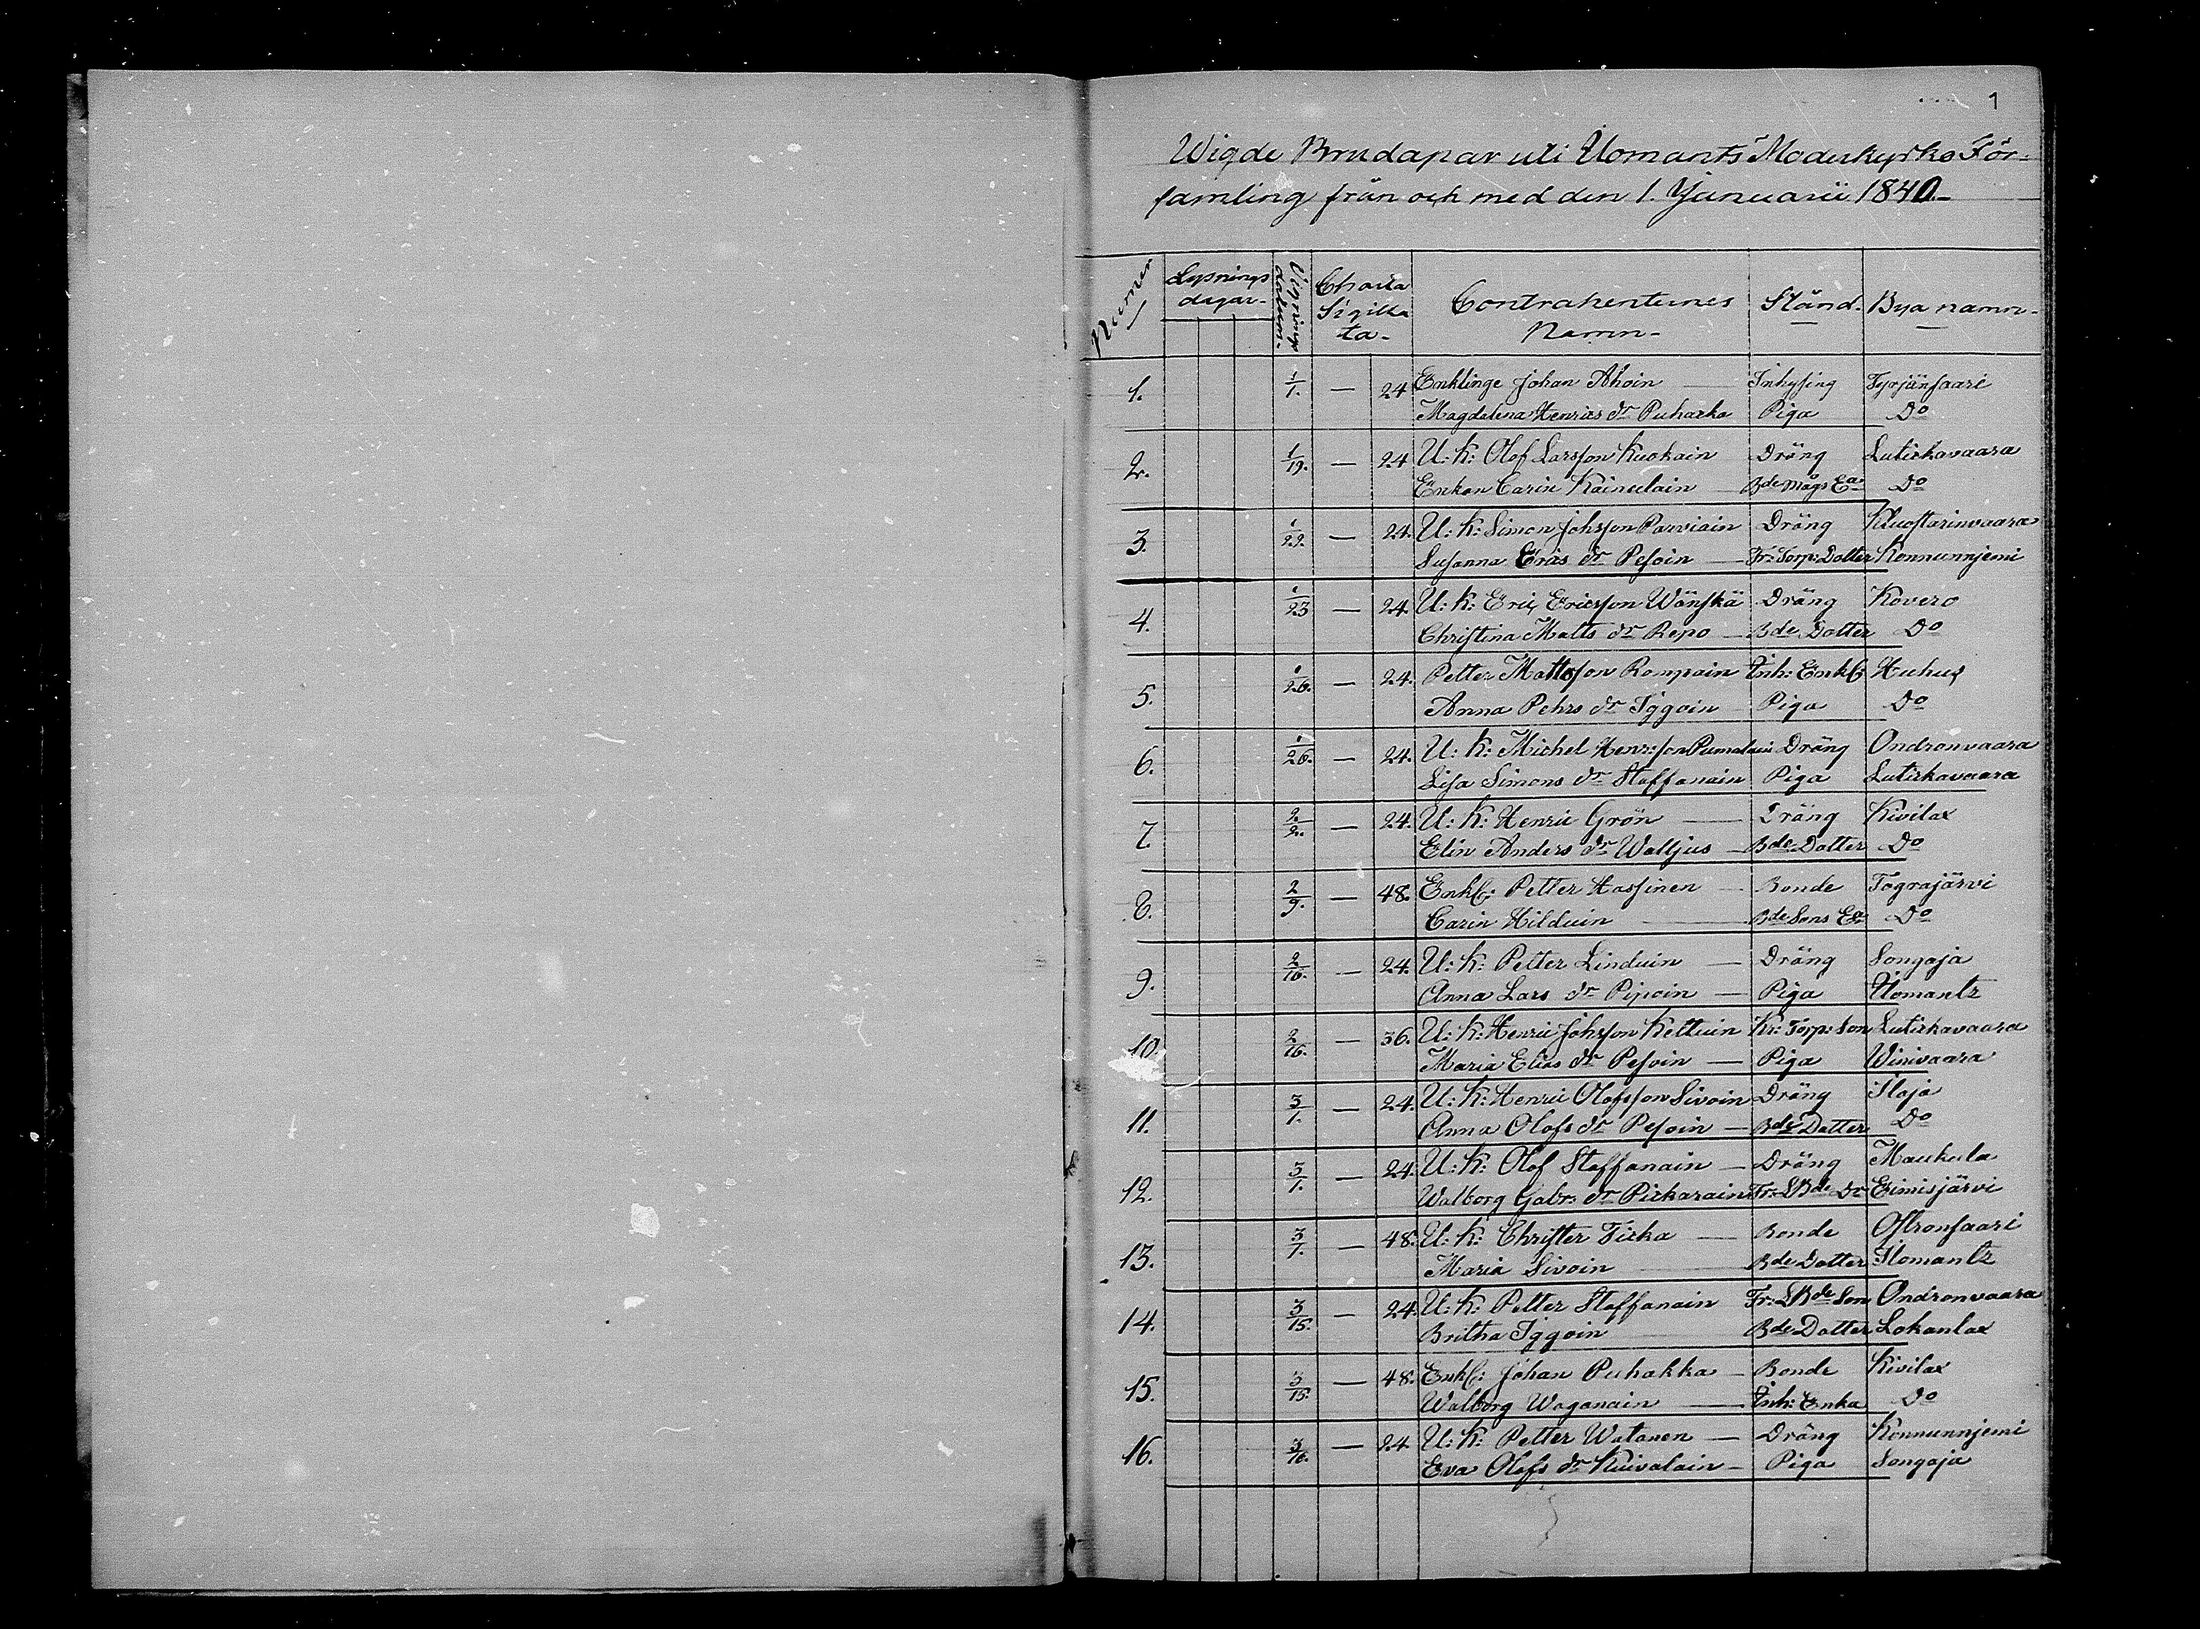 1
Wigde Brudapar uti Ilomants Moderkyrko För-
samling från och med den 1. Januarii 1840.-
Numer Lysnings dagar- Vignings datum- Charta Sigilla ta- Contrahenternes Namn- Stånd- Bya namn-
1. 1/1. — 24 Enklinge Johan Ahoin — Inhysing Tyrjänsaari
Magdalena Henrics dr Puhacka Piga Do
2. 1/19. — 24 U: K: Olof Larsson Kuokain Dräng Lutickavaara
Enkan Carin Kainulain — Bde mågs Ea Do
3. 1/22. — 24. U: K: Simon Johsson Parviain Dräng Kuostarinvaara
Susanna Erics dr Pesoin — Kr: Torp: Dotter Konnunnjemi
4. 1/23 — 24. U: K: Eric Ericsson Wänskä Dräng Kovero
Christina Matts dr Repo — Bde Dotter Do
5. 1/26. — 24. Petter Mattsson Rompain Inh: Enkl: Huhus
Anna Pehrs dr Iggoin — Piga Do
6. 1/26. — 24. U: K: Michel Henr:sson Pumalain Dräng Ondronvaara
Lisa Simons dr Staffanain Piga Lutickavaara
7. 2/2. — 24. U: K: Henric Grön — Dräng Kivilax
Elin Anders dr Walljus — Bde Dotter Do
8. 2/9. — 48. Enkl: Petter Hassinen — Bonde Tograjärvi
Carin Hilduin — Bde Sons Ea Do
9. 2/16. — 24. U: K: Petter Linduin — Dräng Songaja
Anna Lars dr Pipoin — Piga Ilomantz
10. 2/16. — 36. U: K: Henric Johsson Kettuin Kr: Torp: Son Lutickavaara
Maria Elias dr Pesoin — Piga Winivaara
11. 3/1. — 24. U: K: Henric Olofsson Sivoin Dräng Ilaja
Anna Olofs dr Pesoin — Bde Dotter Do
12. 3/1. — 24. U: K: Olof Staffanain — Dräng Maukula
Walborg Gabr: dr Pickarain Fr: LBde Dr Eimisjärvi
13. 3/1. — 48. U: K: Christer Ticka — Bonde Ostronsaari
Maria Sivoin — Bde Dotter Ilomantz
14. 3/15. — 24. U: K: Petter Staffanain Fr: LBde Son Ondronvaara
Britha Iggoin — Bde Dotter Lokanlax
15. 3/15. — 48. Enkl: Johan Puhakka — Bonde Kivilax
Walborg Woganain — Inh: Enka Do
16. 3/16. — 24 U: K: Petter Watanen — Dräng Konnunnjemi
Eva Olofs dr Kuivalain — Piga Songaja